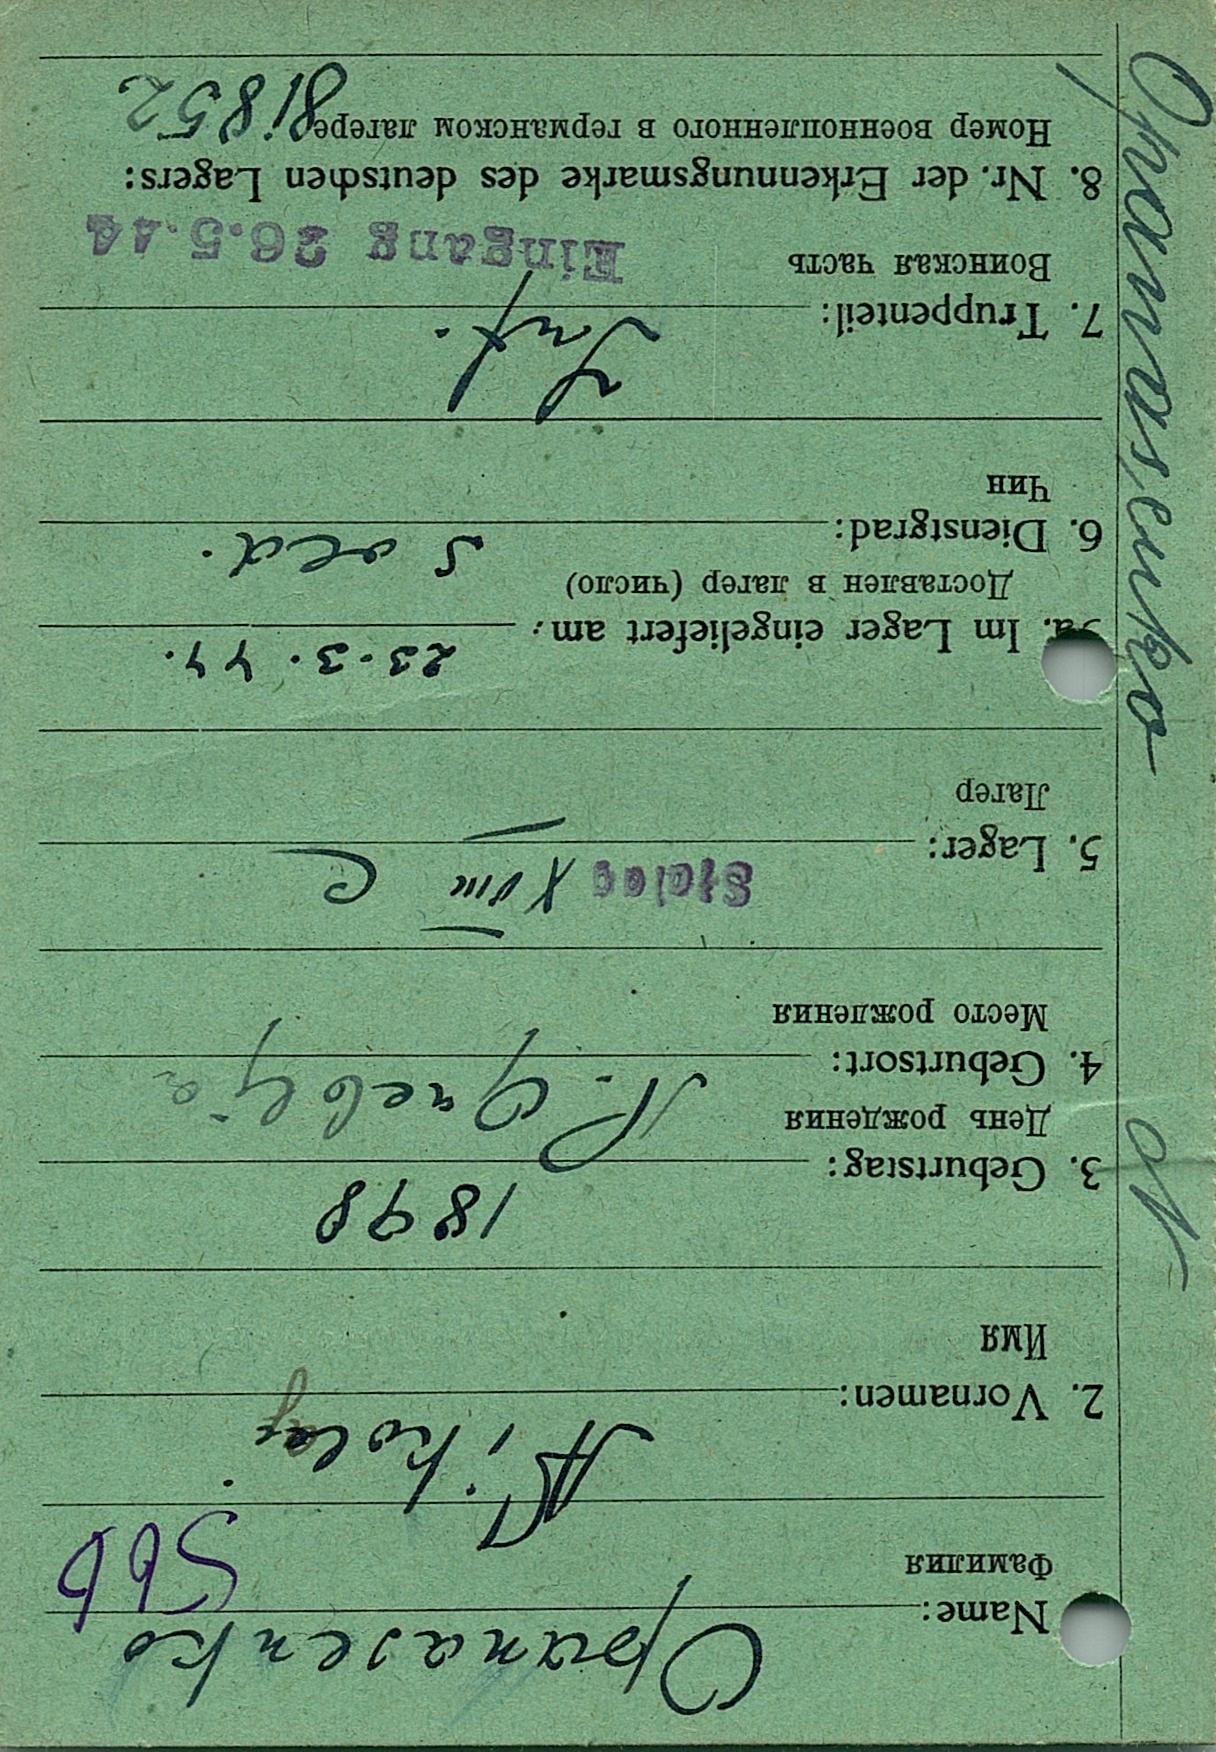 Name: Opanasenko
Фамилия
2. Vornamen: Nikolaj
Имя
3. Geburtstag: 1898
День рождения
4. Geburtsort: N.
Место рождения
5. Lager: Stalag XVIII C
Лагер
5a. Im Lager eingeliefert am: 23.3.44.
Доставлен в лагер (число)
6. Dienstgrad: Sold.
Чин
7. Truppenteil: Inf.
Воинская часть Eingang 26.5.44
8. Nr. der Erkennungsmarke des deutschen Lagers:
Номер военнопленного в германском лагере 81852
Opanasenko N